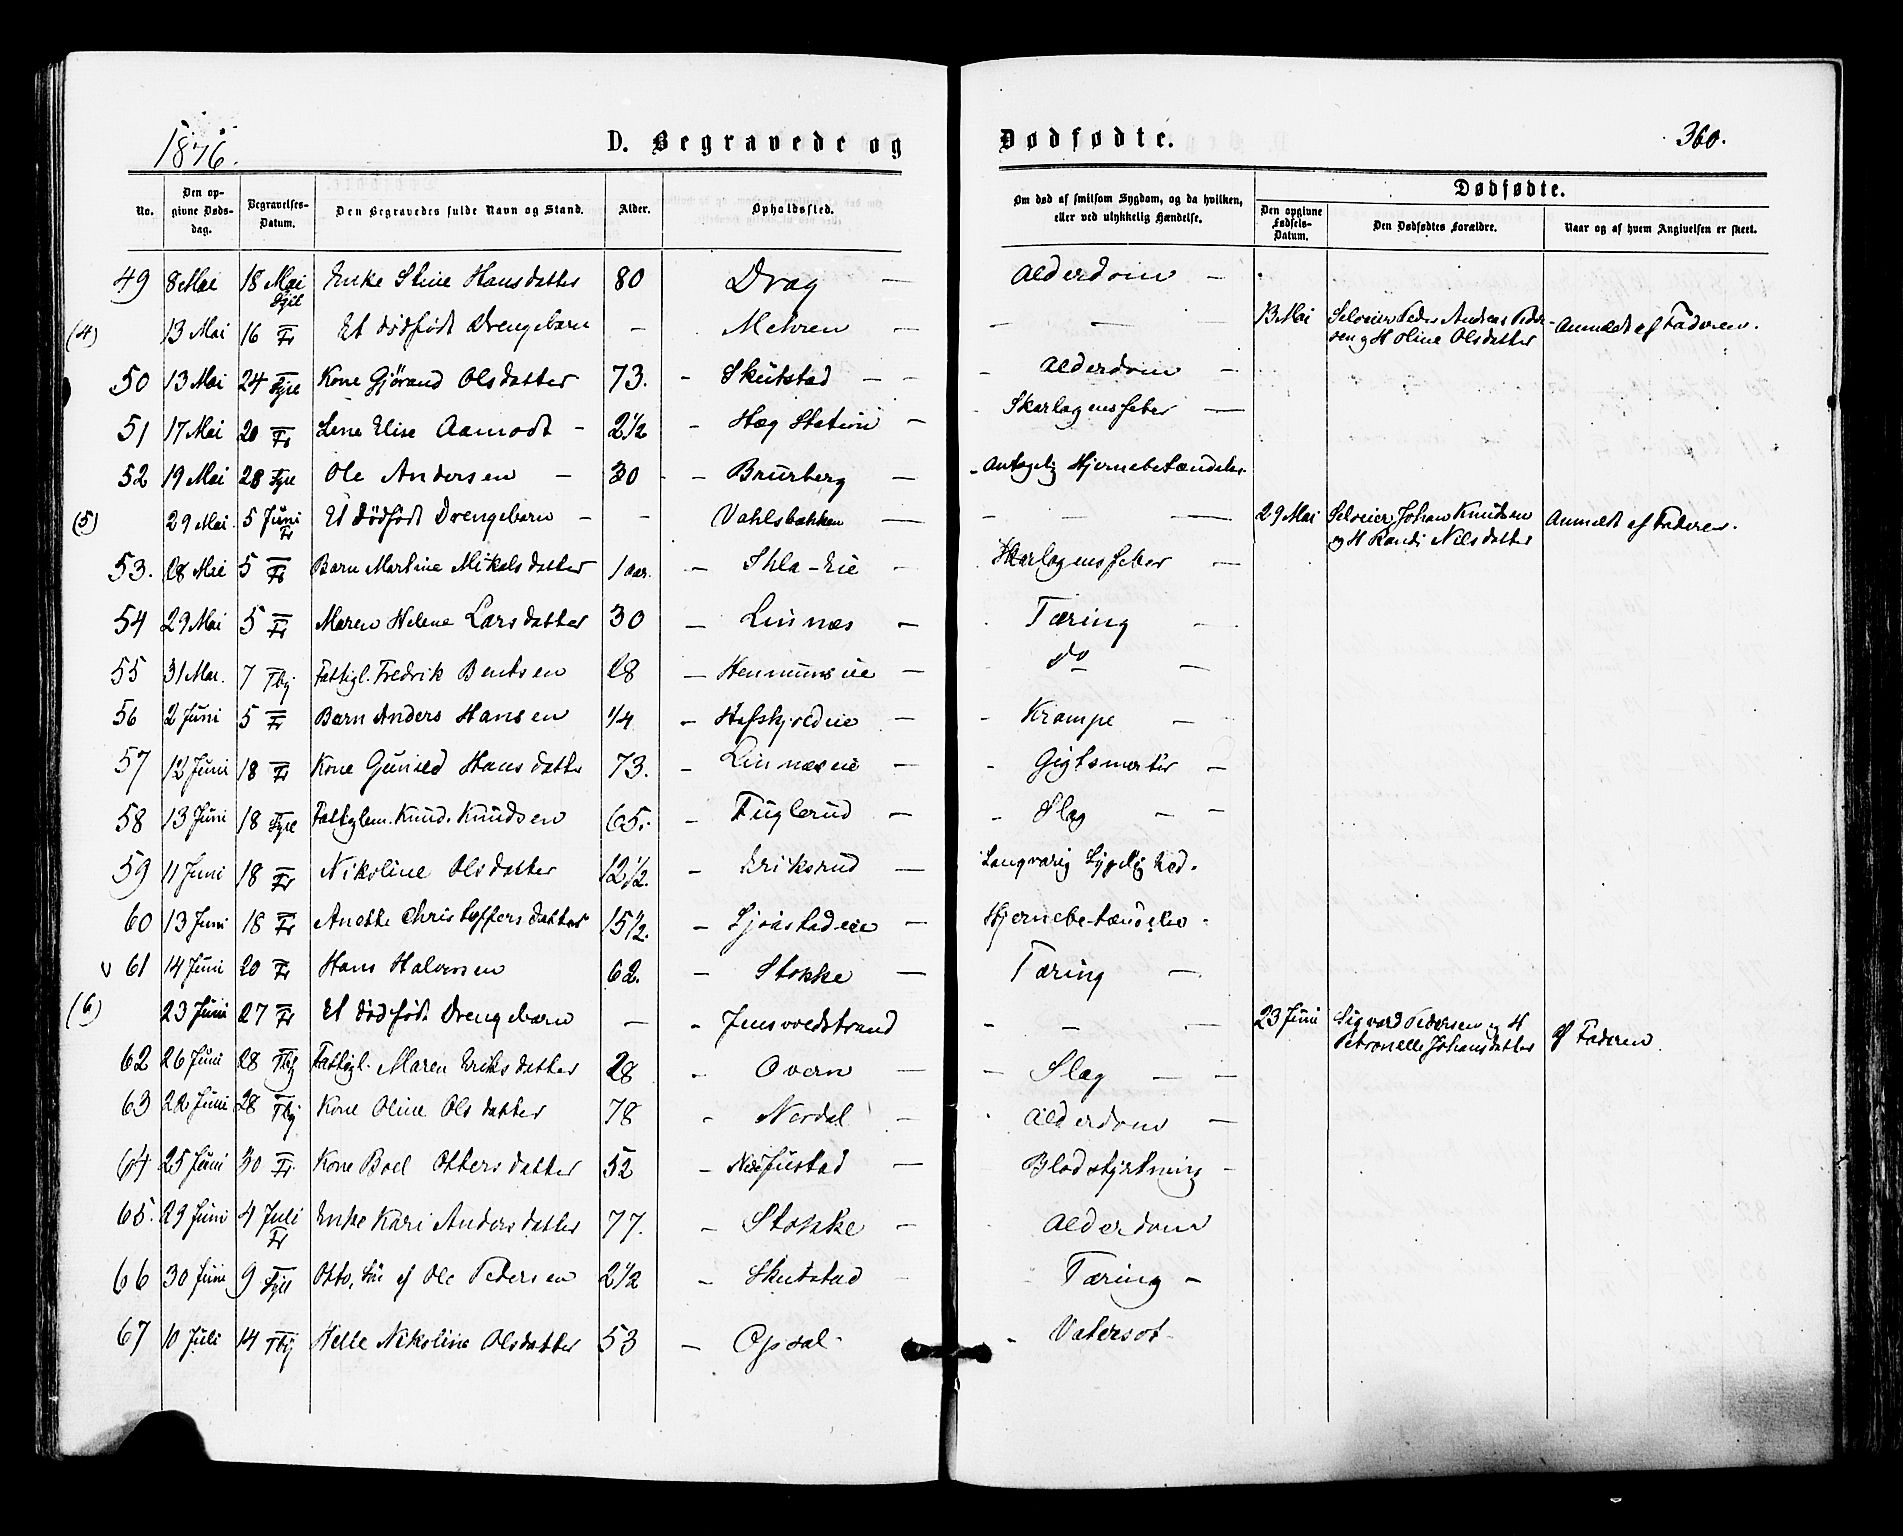 1876.
D. Begravede og
Dødfødte.
360.
No.
Den opgivne Dødsdag.
Begravelses-Datum.
Den Begravedes fulde Navn og Stand.
Alder.
Opholdssted.
Om død af smitsom Sygdom, og da hvilken, eller ved ulykkelig Hændelse.
Dødfødte.
Den opgivne Fødsels-Datum.
Den Dødfødtes Forældre.
Naar og af hvem Angivelsen er skeet.
49 8 Mai 18 Mai Enke Stine Hansdatter 80 Drag — Alderdom —
(4) 13 Mai 16 — Fr Et dødfødt Drengebarn — Mehren — — — 13 Mai Selveier Peder Andreas Pedersen og H Oline Olsdatter Anmeldt af Faderen.
50 13 Mai 24 — Kone Gjørand Olsdatter 73. - Skutstad — — - Alderdom —
51 17 Mai 20 — Fr Lene Elise Aamodt - 2 1/2 - Høg Station — - Skarlagensfeber —
52 19 Mai 28 Ole Andersen — 30 - - Brurberg — - Antagelig Hjernebetændelse
(5) 29 Mai 5 Juni Fr Et dødfødt Drengebarn — - Vahlsbakken — - — — 29 Mai Selveier Johan Knudsen og H Randi Nilsdatter Anmeldt af Faderen.
53. 28 Mai 5 — Fr Barn Martine Mikalsdatter 1 aar. - - Skarlagensfeber —
54 29 Mai 5 — Fr Maren Helene Larsdatter 30 — Linnæs — - Tæring —
55 31 Mai. 7 Tby Fattigl. Fredrik Bentsen 28 — — - do —
56 2 Juni 5 — Fr Barn Anders Hansen 1/4 - — - Krampe —
57 12 Juni 18 — Fr Kone Gunild Hansdatter 73. - Linnæseie — - Gigtsmerter —
58 13 Juni 18 — Fattiglem. Knud Knudsen 65. - Fuglerud — - Slag — —
59 11 Juni 18 — Fr Nikoline Olsdatter 12 1/2. - Eriksrud — Langvarig
60 13 Juni 18 — Fr Anette Christoffersdatter 15 1/2. - — Hjernebetændelse -
61 14 Juni 20 — Fr Hans Halvorsen 62. - Stokke — Tæring —
(6) 23 Juni 27 — Fr Et dødfødt Drengebarn — - Jensvoldstrand - - — 23 Juni Sigvard Pedersen og H Petronelle Johansdatter af Faderen.
62 26 Juni 28 Tby Fattigl. Maren Eriksdatter 28 - Overn — — Slag — —
63 22 Juni 28 — Tby Kone Oline Olsdatter 78 - Nordal — - Alderdom —
64 25 Juni 30 — Fr. Kone Boel Ottersdatter 52 - — Blodstyrtning -
65. 29 Juni 4 Juli Fr Enke Kari Andersdatter 77. - Stokke — Alderdom
66 30 Juni 9 — Otto, Søn af Ole Pedersen 2 1/2 - Skutstad - - Tæring —
67 10 Juli 14 Tby Helle Nikoline Olsdatter 53 — Opdal - - Vatersot -